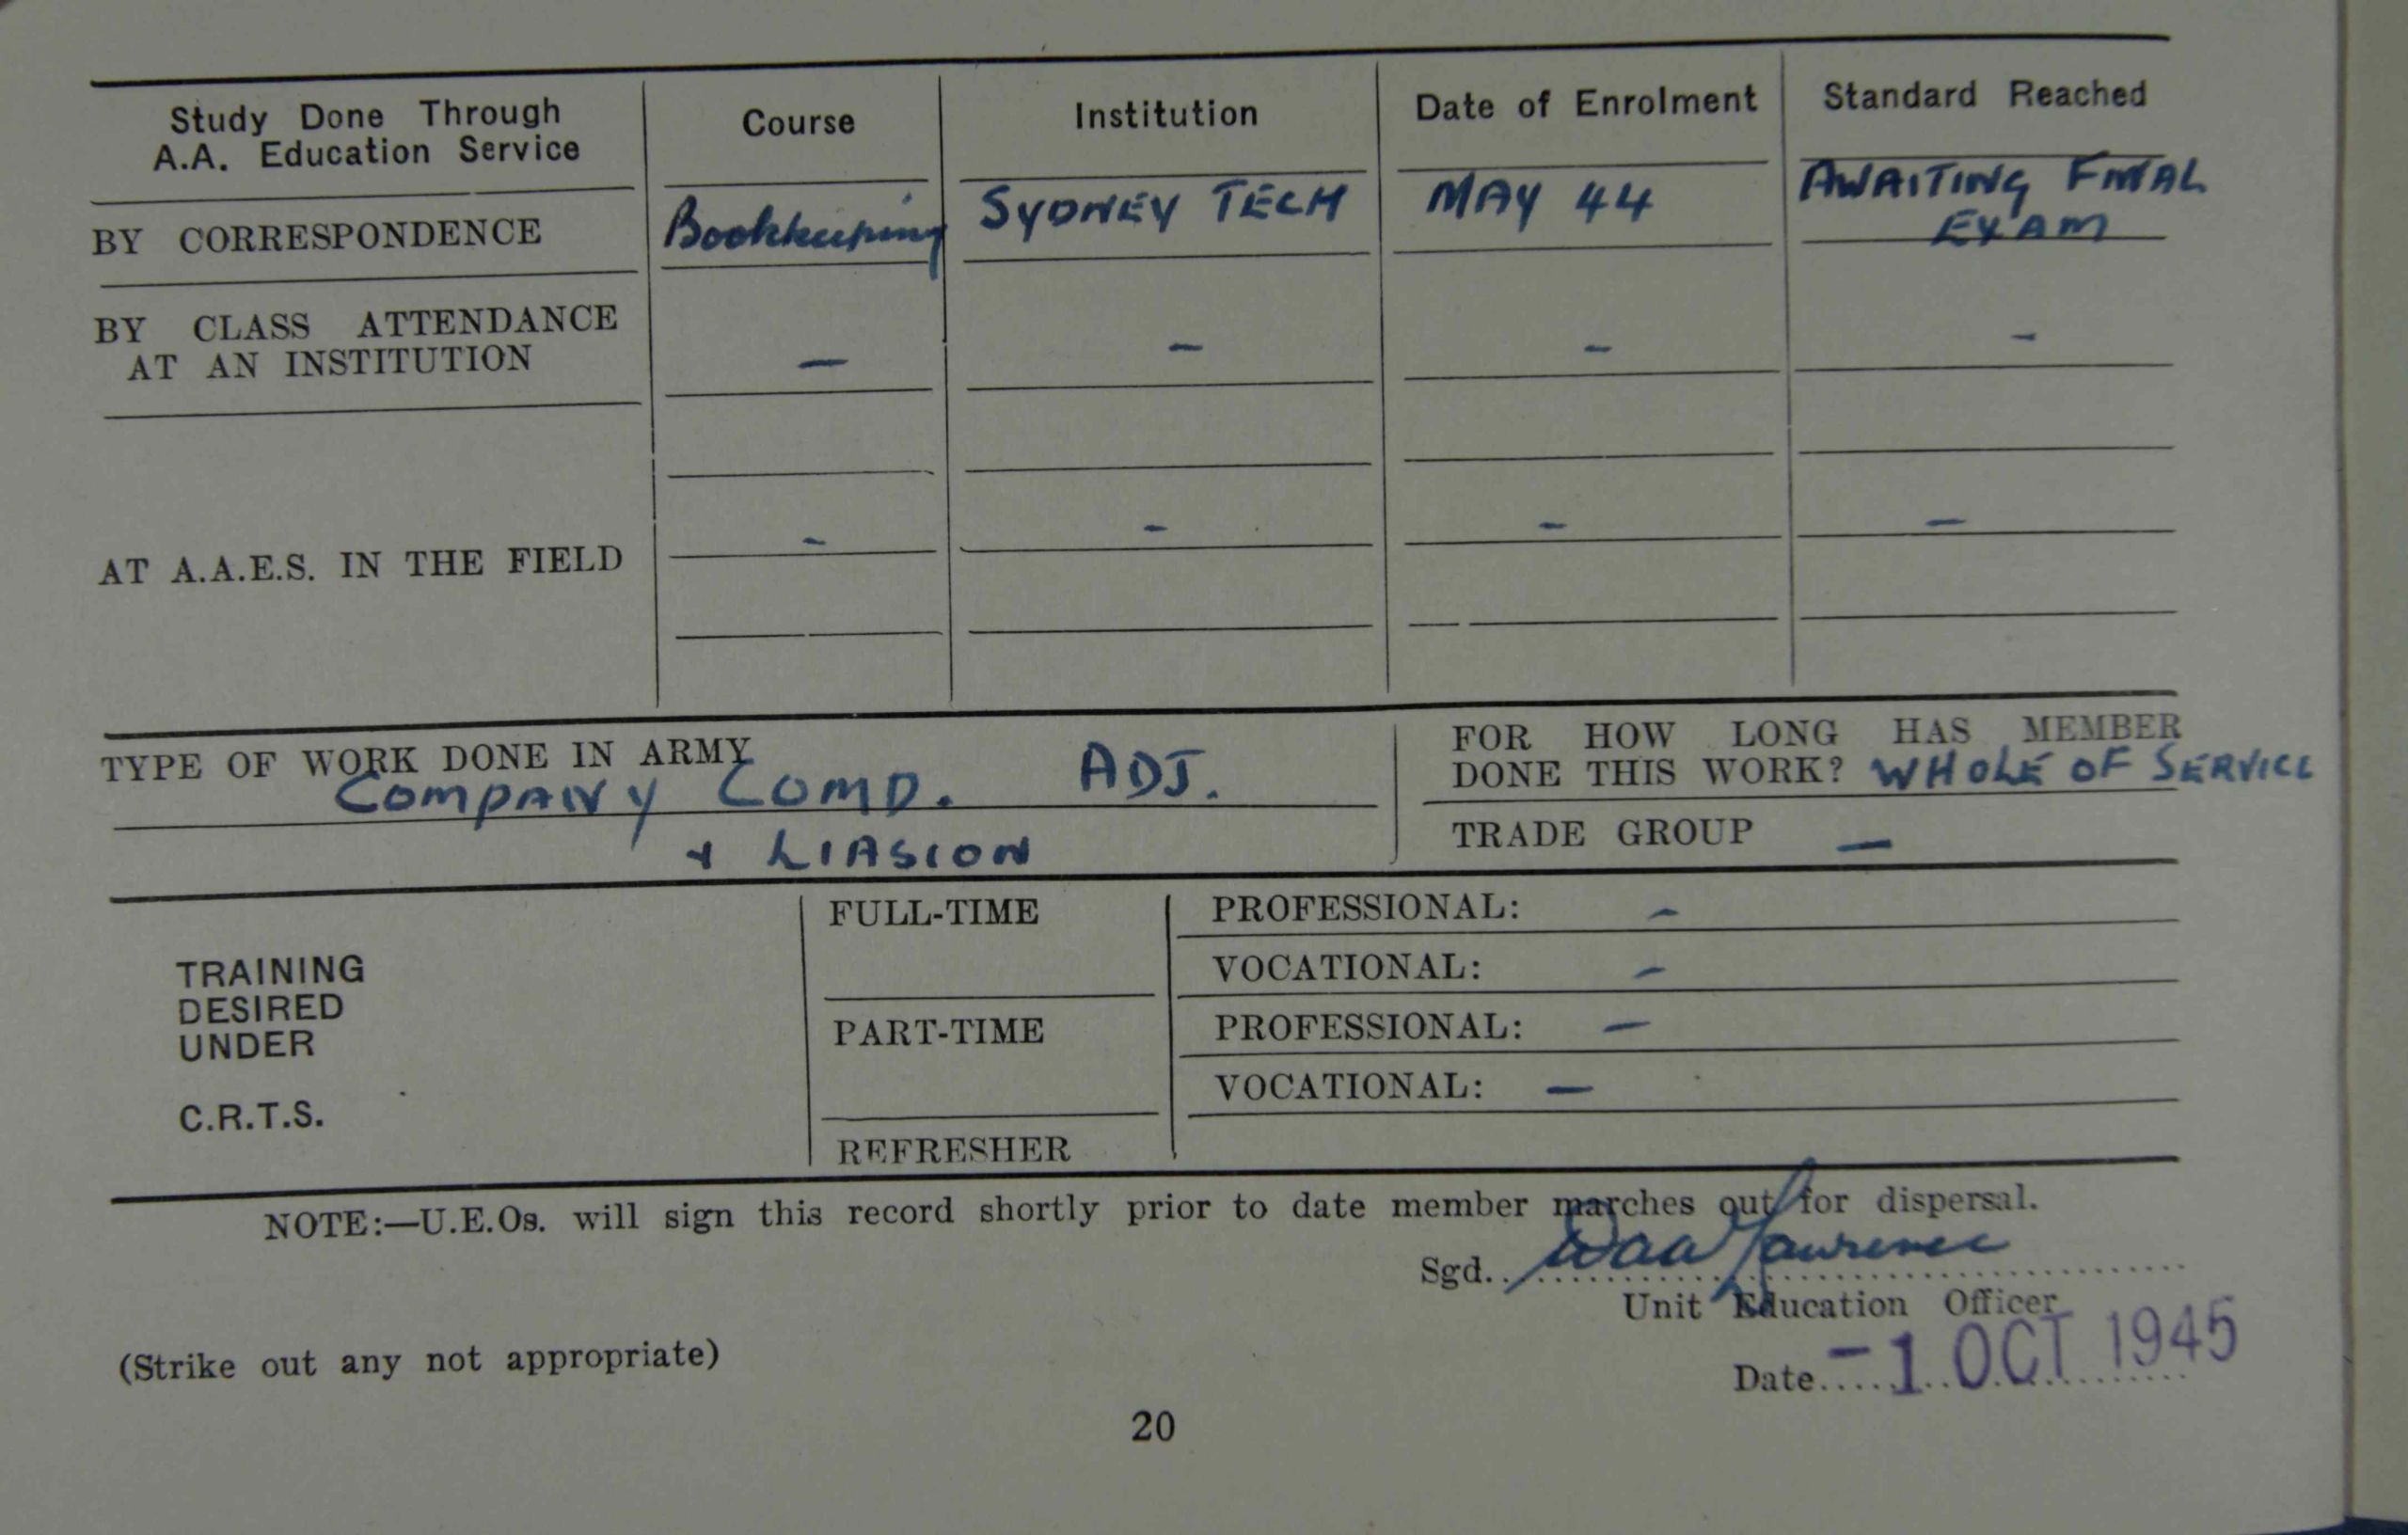 Study Done Through A.A. Education Service | Course | Institution | Date of Enrolment | Standard Reached
BY CORRESPONDENCE | Bookkeeping | SYDNEY TECH | MAY 44 | AWAITING FINAL EXAM
BY CLASS ATTENDANCE AT AN INSTITUTION | – | – | – | –
AT A.A.E.S. IN THE FIELD | – | – | – | –
TYPE OF WORK DONE IN ARMY
COMPANY COMD. ADJ.
+ LIASION
FOR HOW LONG HAS MEMBER
DONE THIS WORK? WHOLE OF SERVICE
TRADE GROUP –
TRAINING
DESIRED
UNDER
C.R.T.S.
FULL-TIME
PROFESSIONAL: –
VOCATIONAL: –
PART-TIME
PROFESSIONAL: –
VOCATIONAL: –
REFRESHER
NOTE:—U.E.Os. will sign this record shortly prior to date member marches out for dispersal.
Sgd. Lawrence
Unit Education Officer
(Strike out any not appropriate)
Date -1 OCT 1945
20